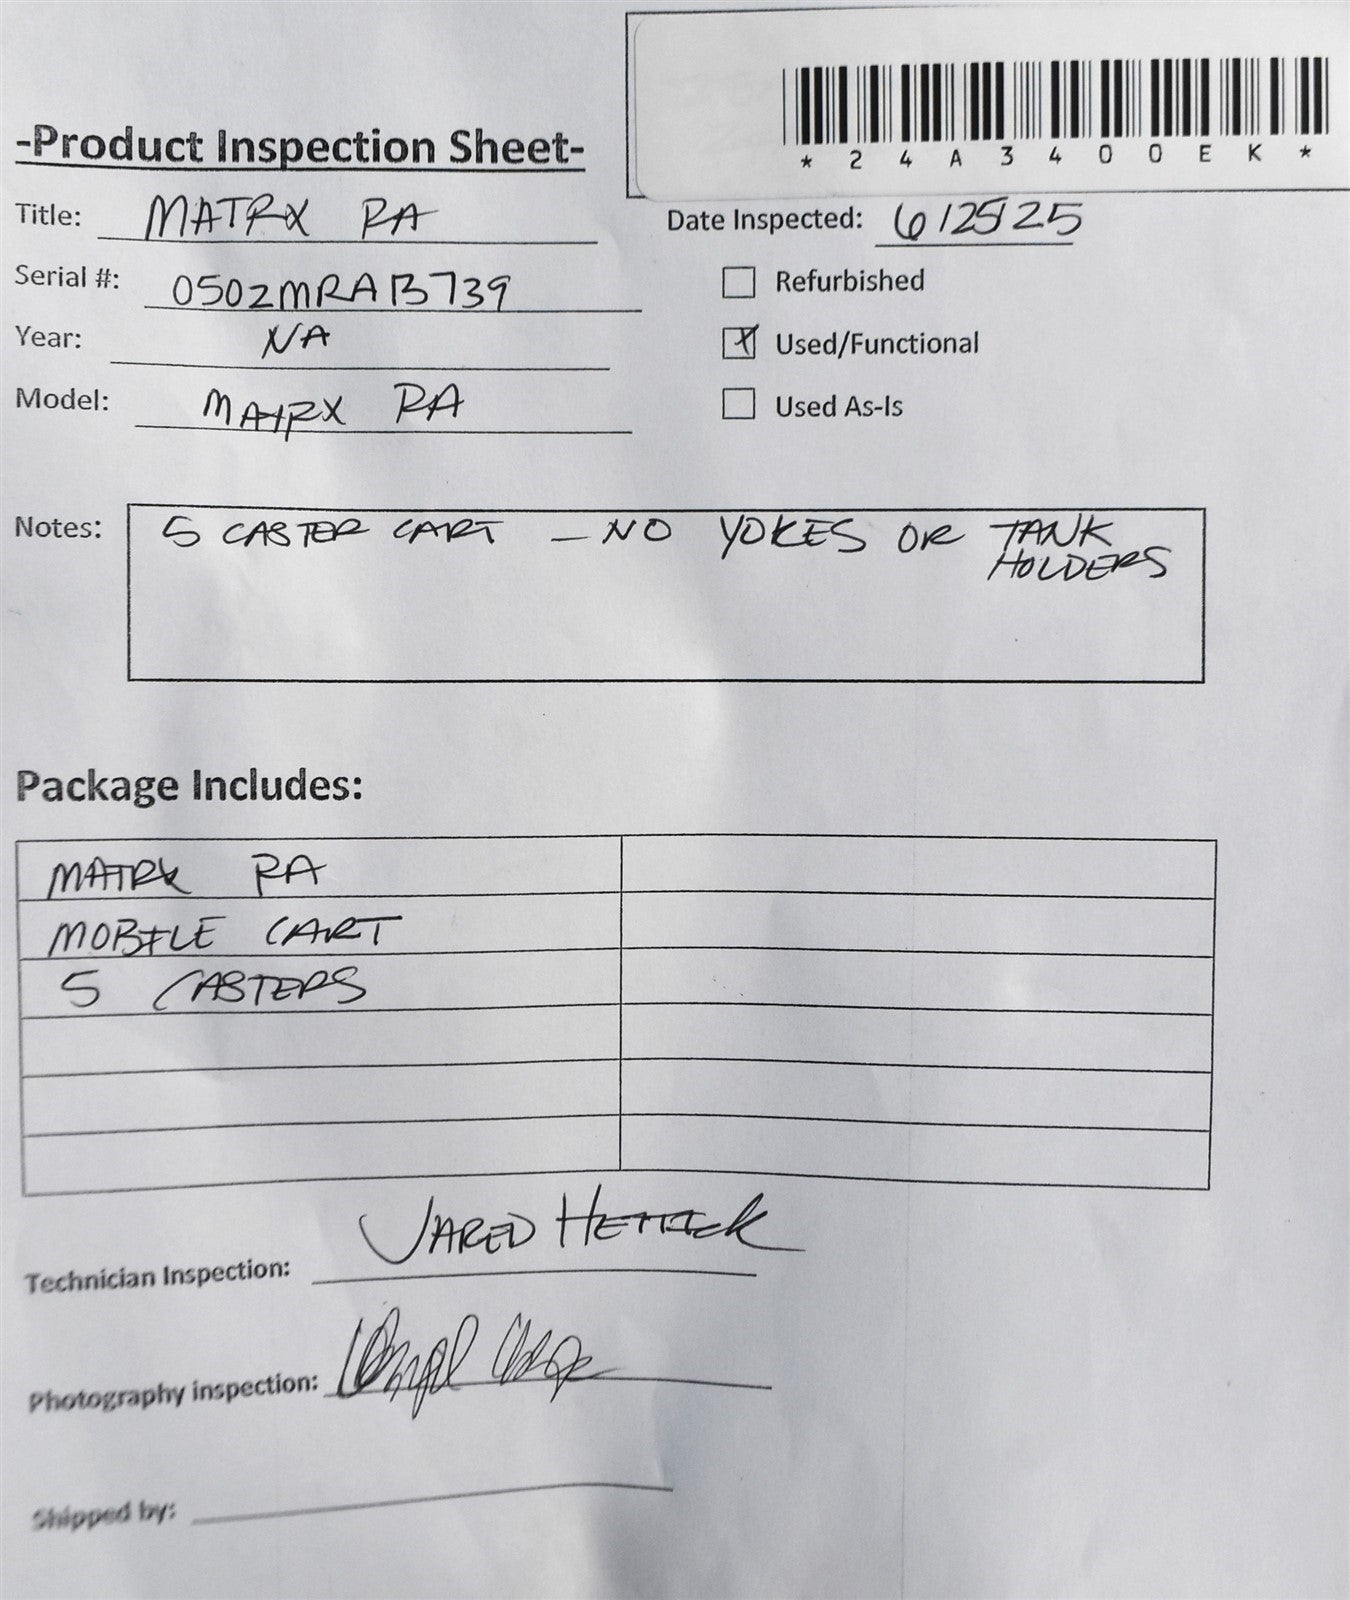 *24A3400EK*
-Product Inspection Sheet-
Title: MATRX RA
Date Inspected: 6/25/25
Serial #: 0502MRAB739
Refurbished
Year: NA
Used/Functional
Model: MATRX RA
Used As-Is
Notes: 5 CASTER CART - NO YOKES OR TANK
HOLDERS
Package Includes:
MATRX RA
MOBILE CART
5 CASTERS
Technician Inspection: JARED HETRICK
Photography inspection:
Shipped by: